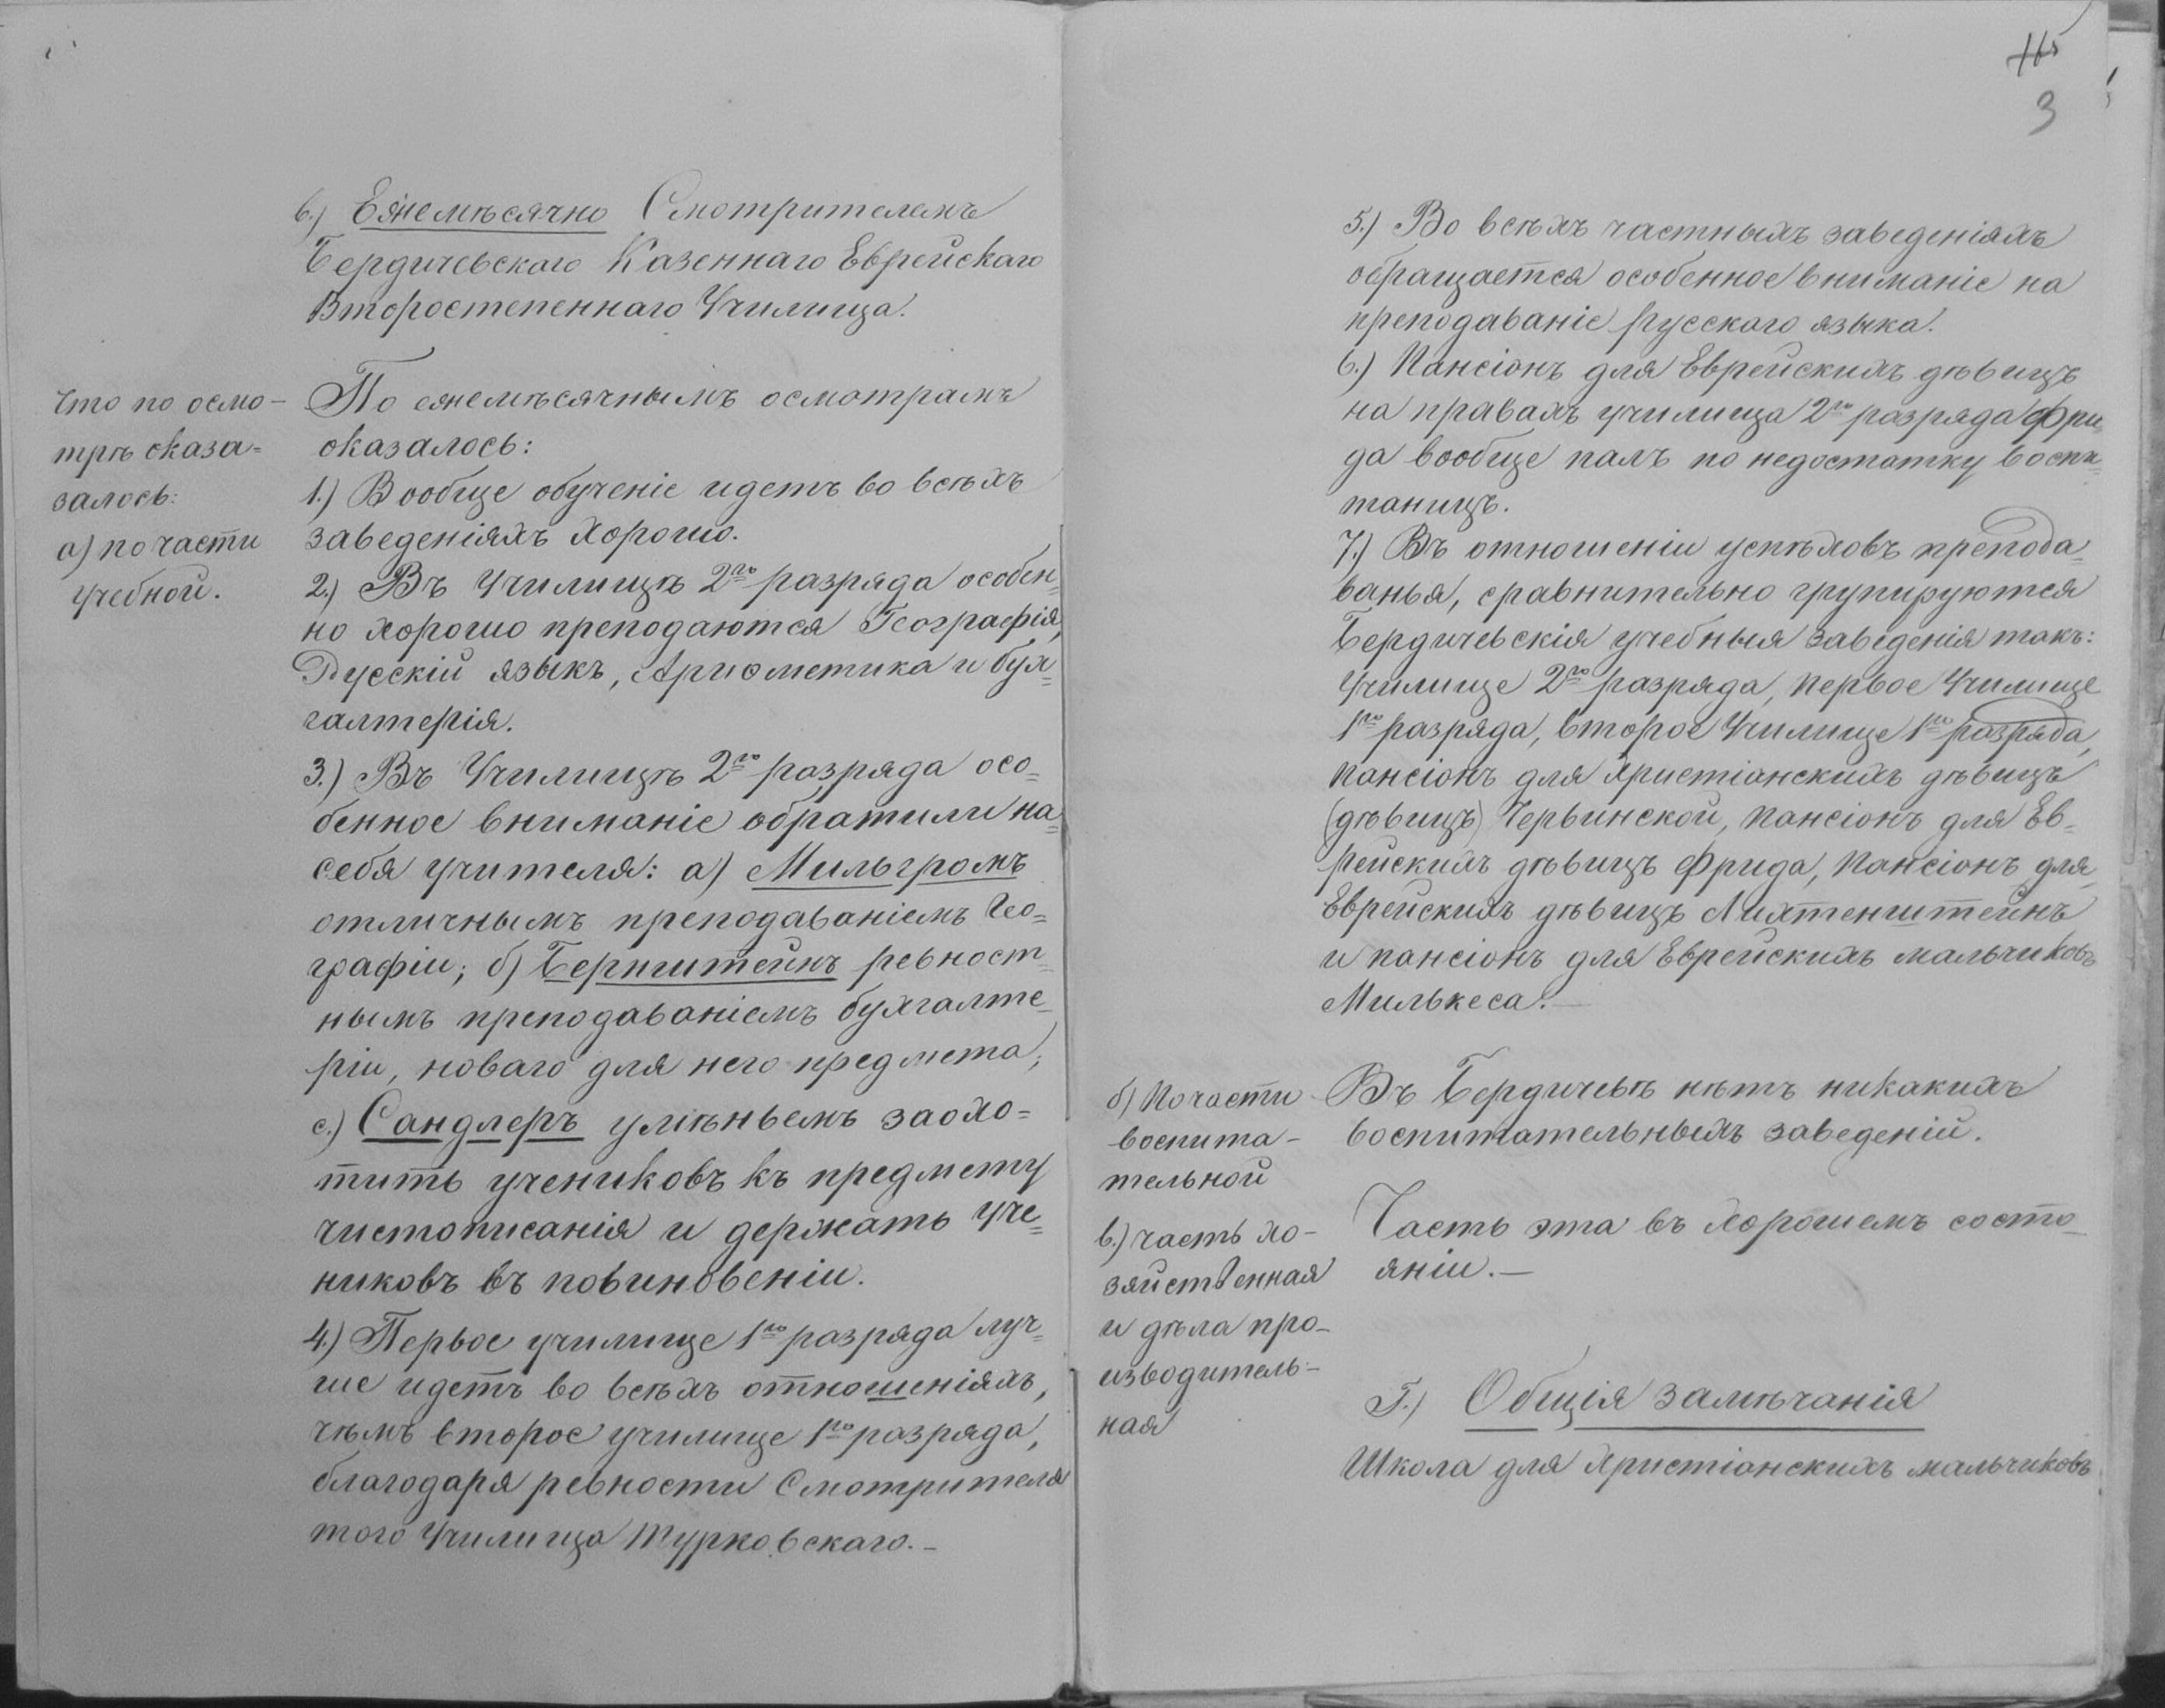 6.) Ежемѣсячно Смотрителемъ
Бердичевскаго Казеннаго Еврейскаго
Второстепеннаго Училища.
Что по осмо-
трѣ оказа-
залось:
а) по части
учебной.
По ежемѣсячнымъ осмотрамъ
оказалось:
1.) Вообще обученіе идетъ во всѣхъ
заведеніяхъ хорошо.
2.) Въ Училищѣ 2го разряда особен=
но хорошо преподаются Географія,
Русскій языкъ, Ариѳметика и бух=
галтерія.
3.) Въ Училищѣ 2го разряда осо=
бенное вниманіе обратили на=
себя учителя: а) Мильгромъ
отличнымъ преподаваніемъ Гео=
графіи; б) Бернштейнъ ревност=
нымъ преподаваніемъ бухгалте=
ріи, новаго для него предмета;
с.) Сандлеръ умѣньемъ заохо=
тить учениковъ къ предмету
чистописанія и держать уче=
никовъ въ повиновеніи.
4.) Первое училище 1го разряда луч=
ше идетъ во всѣхъ отношеніяхъ,
чѣмъ второе училище 1го разряда,
благодаря ревности Смотрителя
того Училища Турковскаго.-
115
3
5.) Во всѣхъ частныхъ заведеніяхъ
обращается особенное вниманіе на
преподаваніе Русскаго языка.
6.) Пансіонъ для Еврейскихъ дѣвицъ
на правахъ училища 2го разряда Фри=
да вообще палъ по недостатку воспи=
таницъ.
7.) Въ отношеніи успѣховъ препода=
ванья, сравнительно групируются
Бердичевскія учебныя заведенія такъ:
Училище 2го разряда, первое Училище
1го разряда, второе Училище 1го разряда,
пансіонъ для Христіанскихъ дѣвицъ
(дѣвицъ) Червинской, пансіонъ для Ев=
рейскихъ дѣвицъ Фрида, пансіонъ для
Еврейскихъ дѣвицъ Лихтенштейнъ
и пансіонъ для Еврейскихъ мальчиковъ
Милькеса.-
б) По части
воспита-
тельной
Въ Бердичевѣ нѣтъ никакихъ
воспитательныхъ заведеній.
в.) часть хо-
зяйственная
и дѣла про-
изводитель-
ная
Часть эта въ хорошемъ состо=
яніи.-
Г.) Общія замѣчанія
Школа для Христіанскихъ мальчиковъ